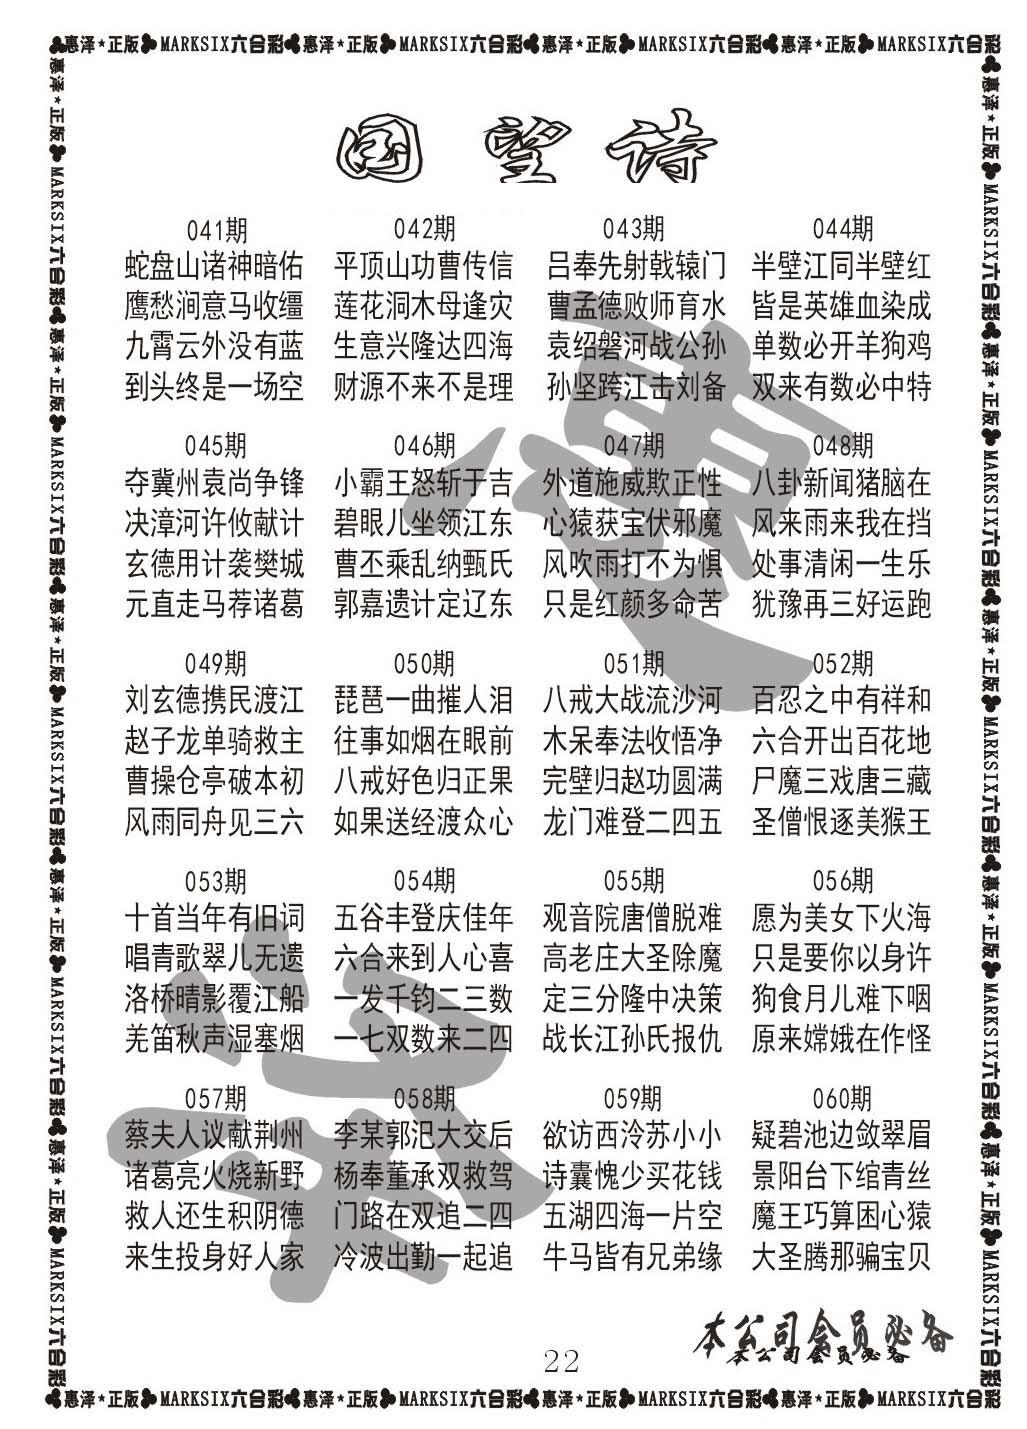 惠泽★正版 MARKSIX六合彩 惠泽★正版 MARKSIX六合彩 惠泽★正版 MARKSIX六合彩 惠泽★正版 MARKSIX六合彩
回望诗
041期
蛇盘山诸神暗佑
鹰愁涧意马收缰
九霄云外没有蓝
到头终是一场空
042期
平顶山功曹传信
莲花洞木母逢灾
生意兴隆达四海
财源不来不是理
043期
吕奉先射戟辕门
曹孟德败师育水
袁绍磐河战公孙
孙坚跨江击刘备
044期
半壁江同半壁红
皆是英雄血染成
单数必开羊狗鸡
双来有数必中特
045期
夺冀州袁尚争锋
决漳河许攸献计
玄德用计袭樊城
元直走马荐诸葛
046期
小霸王怒斩于吉
碧眼儿坐领江东
曹丕乘乱纳甄氏
郭嘉遗计定辽东
047期
外道施威欺正性
心猿获宝伏邪魔
风吹雨打不为惧
只是红颜多命苦
048期
八卦新闻猪脑在
风来雨来我在挡
处事清闲一生乐
犹豫再三好运跑
049期
刘玄德携民渡江
赵子龙单骑救主
曹操仓亭破本初
风雨同舟见三六
050期
琵琶一曲摧人泪
往事如烟在眼前
八戒好色归正果
如果送经渡众心
051期
八戒大战流沙河
木呆奉法收悟净
完壁归赵功圆满
龙门难登二四五
052期
百忍之中有祥和
六合开出百花地
尸魔三戏唐三藏
圣僧恨逐美猴王
053期
十首当年有旧词
唱青歌翠儿无遗
洛桥晴影覆江船
羌笛秋声湿塞烟
054期
五谷丰登庆佳年
六合来到人心喜
一发千钧二三数
一七双数来二四
055期
观音院唐僧脱难
高老庄大圣除魔
定三分隆中决策
战长江孙氏报仇
056期
愿为美女下火海
只是要你以身许
狗食月儿难下咽
原来嫦娥在作怪
057期
蔡夫人议献荆州
诸葛亮火烧新野
救人还生积阴德
来生投身好人家
058期
李某郭汜大交后
杨奉董承双救驾
门路在双追二四
冷波出勤一起追
059期
欲访西泠苏小小
诗囊愧少买花钱
五湖四海一片空
牛马皆有兄弟缘
060期
疑碧池边敛翠眉
景阳台下绾青丝
魔王巧算困心猿
大圣腾那骗宝贝
本公司会员必备
本公司会员必备
22
惠泽★正版 MARKSIX六合彩 惠泽★正版 MARKSIX六合彩 惠泽★正版 MARKSIX六合彩 惠泽★正版 MARKSIX六合彩